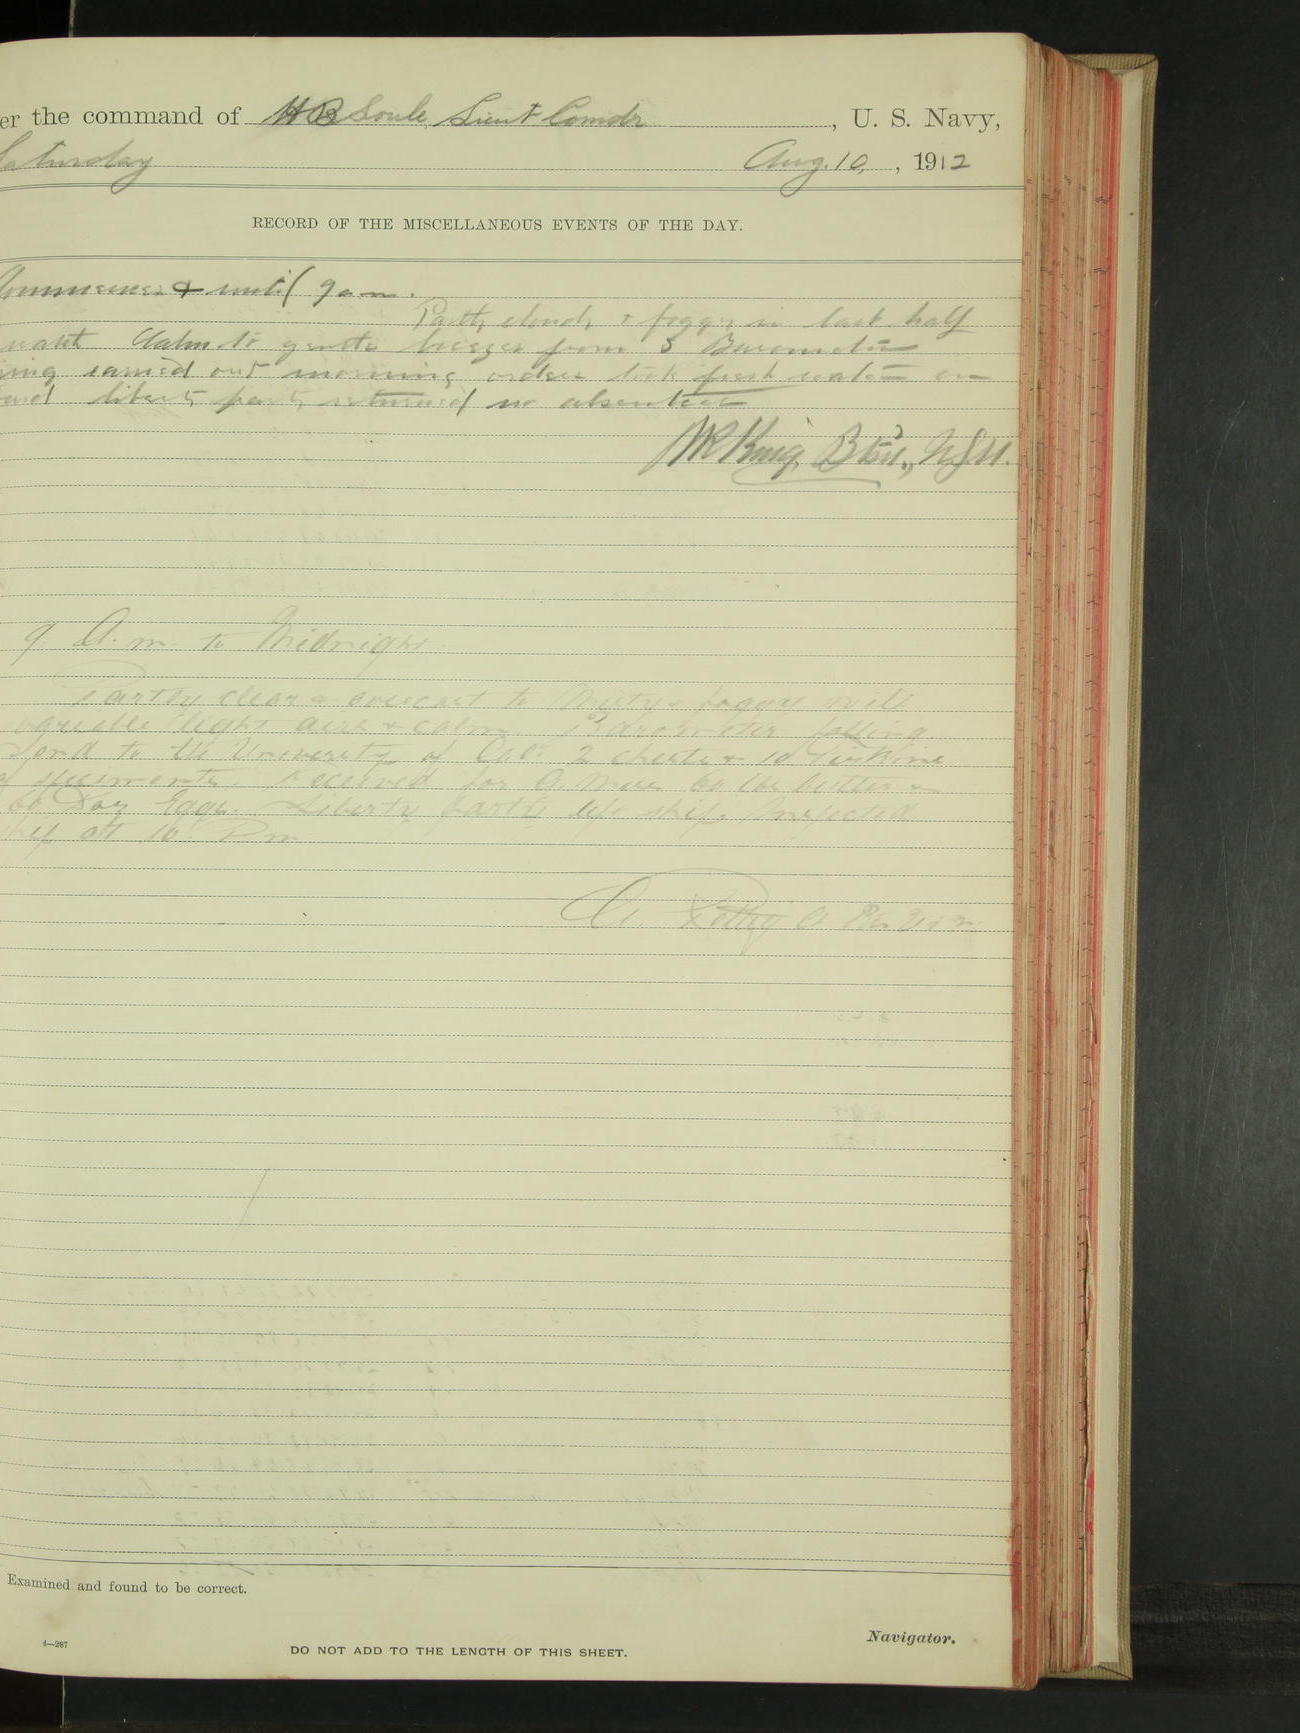 er the command of H B Soule, Lieut Comdr, U. S. Navy,
Saturday Aug. 10, , 1912
RECORD OF THE MISCELLANEOUS EVENTS OF THE DAY.
Commences & until 9 am.
Partly cloudy & foggy in last half
watch Calm to gentle breezes from S Barometer
carried out morning orders took fresh water on
liberty party returned no absentees
King, Btsn., U.S.N.
9 A.m. to Midnight.
Partly clear & overcast to Misty & foggy with
variable light airs & calm. Barometer falling
to the University of Cal. 2 chests & 10
speciments. Received for G. Mess 60 lbs butter &
60 Doz Eggs. Liberty party left ship. Inspected
at 10 Pm
Examined and found to be correct.
4—267
DO NOT ADD TO THE LENGTH OF THIS SHEET.
Navigator.